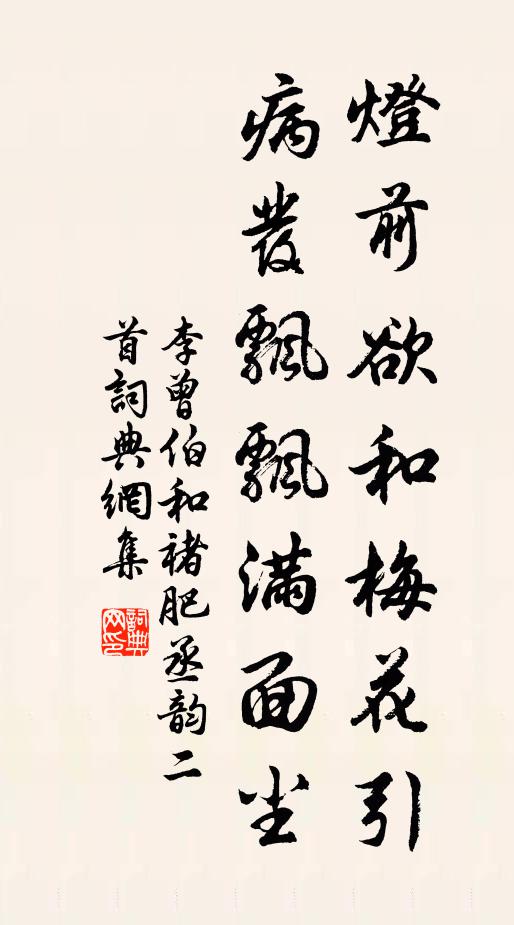 燈前欲和梅花引
病發飄飄滿面尘
李曾伯和褚肥丞韵二
首詞典網集
詞典
网印